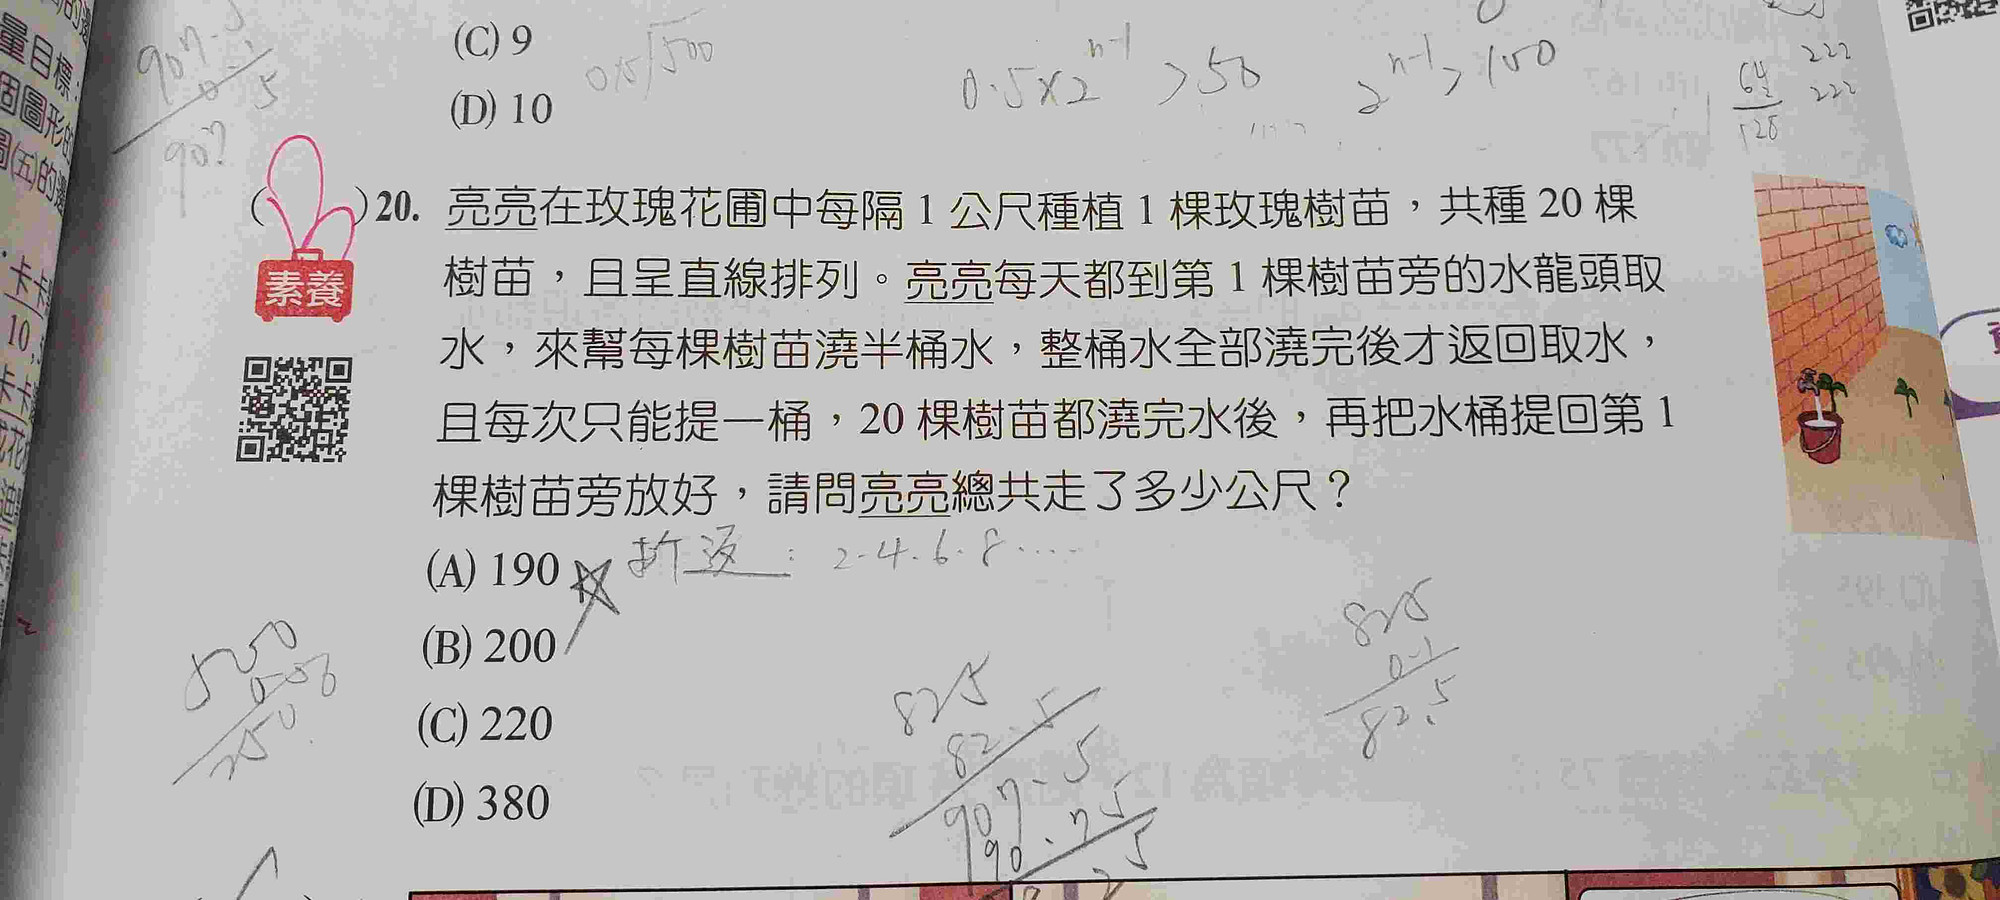 (C) 9
(D) 10
0.5×2^{n-1} > 50
2^{n-1} > 100
64
2
128
222
222
907.5
0.1
量目標：
個圖形的
圖(五)的邊
( )20. 亮亮在玫瑰花圃中每隔 1 公尺種植 1 棵玫瑰樹苗，共種 20 棵
樹苗，且呈直線排列。亮亮每天都到第 1 棵樹苗旁的水龍頭取
水，來幫每棵樹苗澆半桶水，整桶水全部澆完後才返回取水，
且每次只能提一桶，20 棵樹苗都澆完水後，再把水桶提回第 1
棵樹苗旁放好，請問亮亮總共走了多少公尺？
素養
(A) 190
折返：2.4.6.8.....
(B) 200
(C) 220
(D) 380
825
0.1
82.5
825
82.5
907.5
90.75
卡卡
10
卡卡